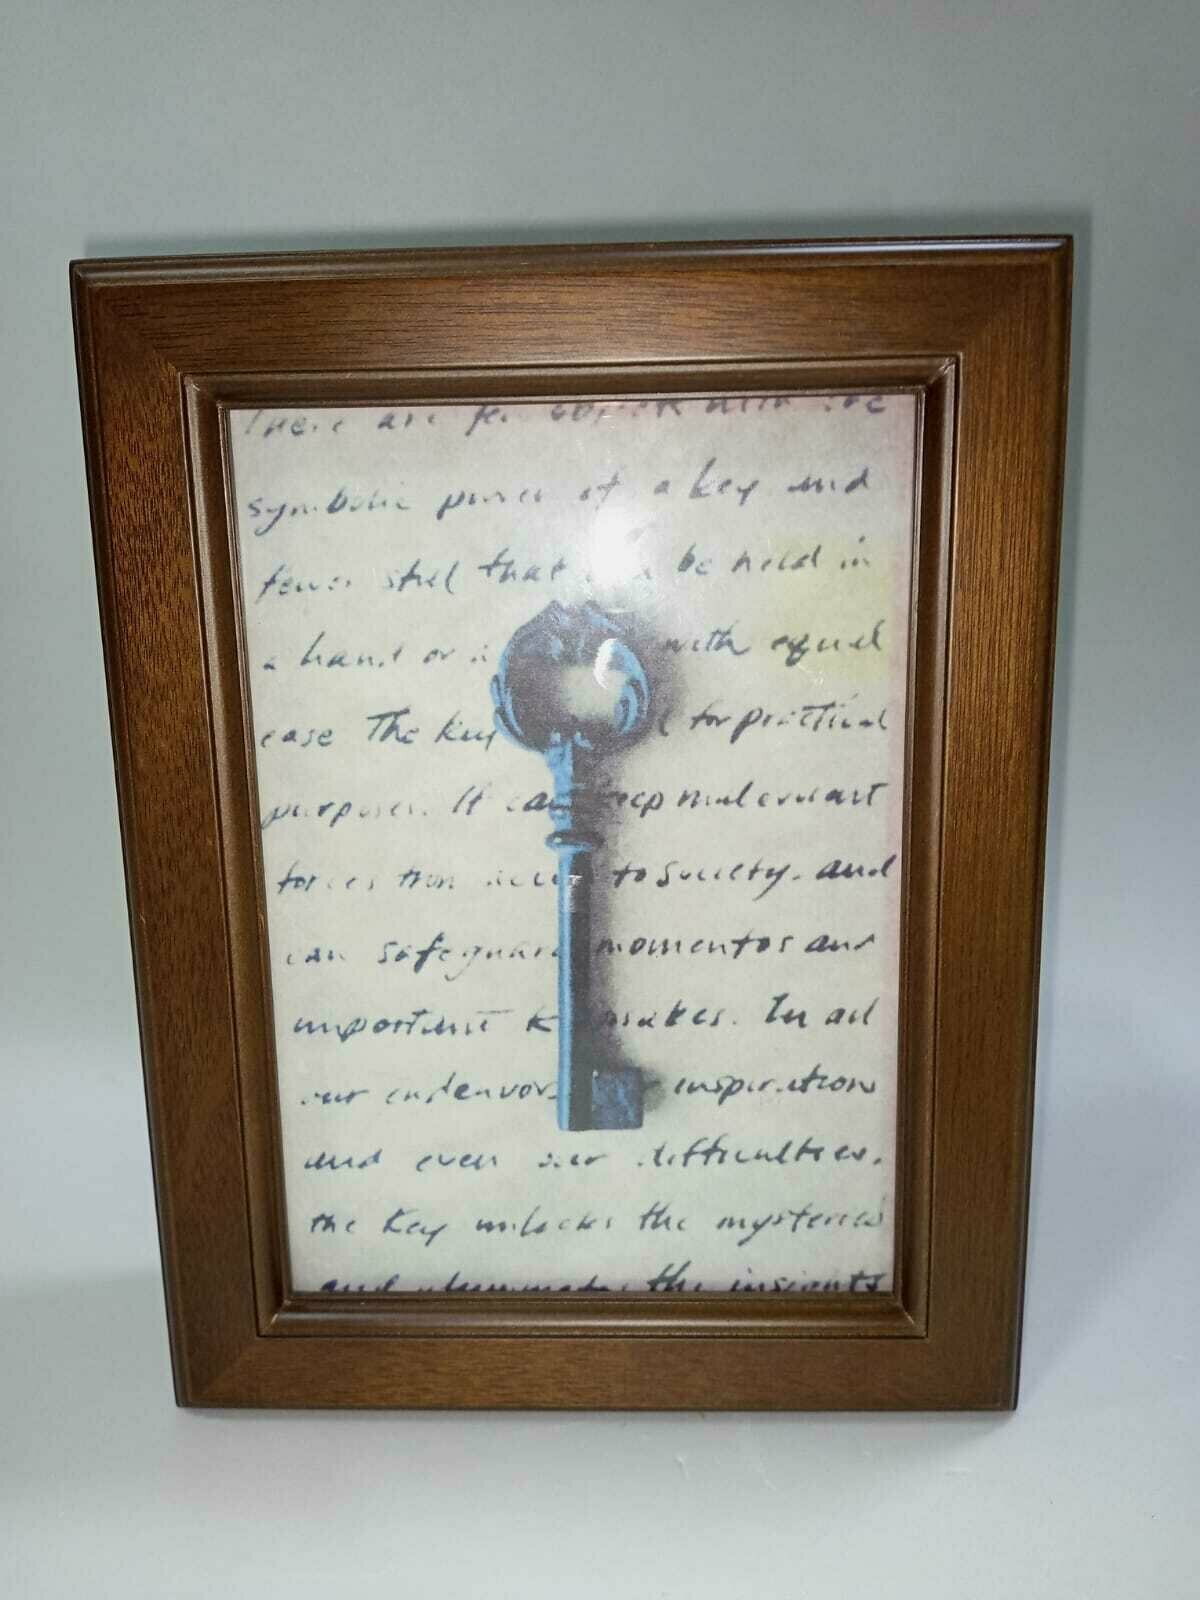 There are few objects with the
symbolic power of a key and
fewer still that be held in
a hand or with equal
ease The key for practical
purposes. It can keep malevolant
forces from to society. and
can safeguard momentos and
important keepsakes. In all
our endeavors inspiration
and even our difficulties,
the key unlocks the mysteries
and the insights